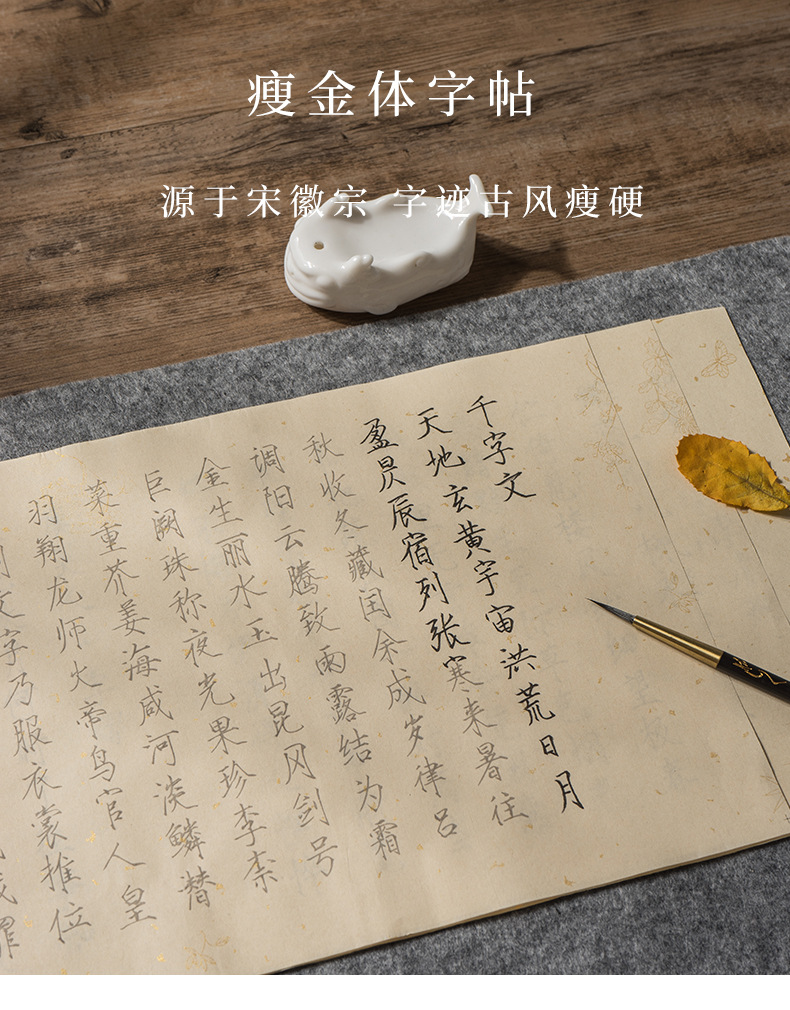 瘦金体字帖
源于宋徽宗 字迹古风瘦硬
千字文
天地玄黄宇宙洪荒日月
盈昃辰宿列张寒来暑往
秋收冬藏闰余成岁律吕
调阳云腾致雨露结为霜
金生丽水玉出昆冈剑号
巨阙珠称夜光果珍李柰
菜重芥姜海咸河淡鳞潜
羽翔龙师火帝鸟官人皇
文字乃服衣裳推位